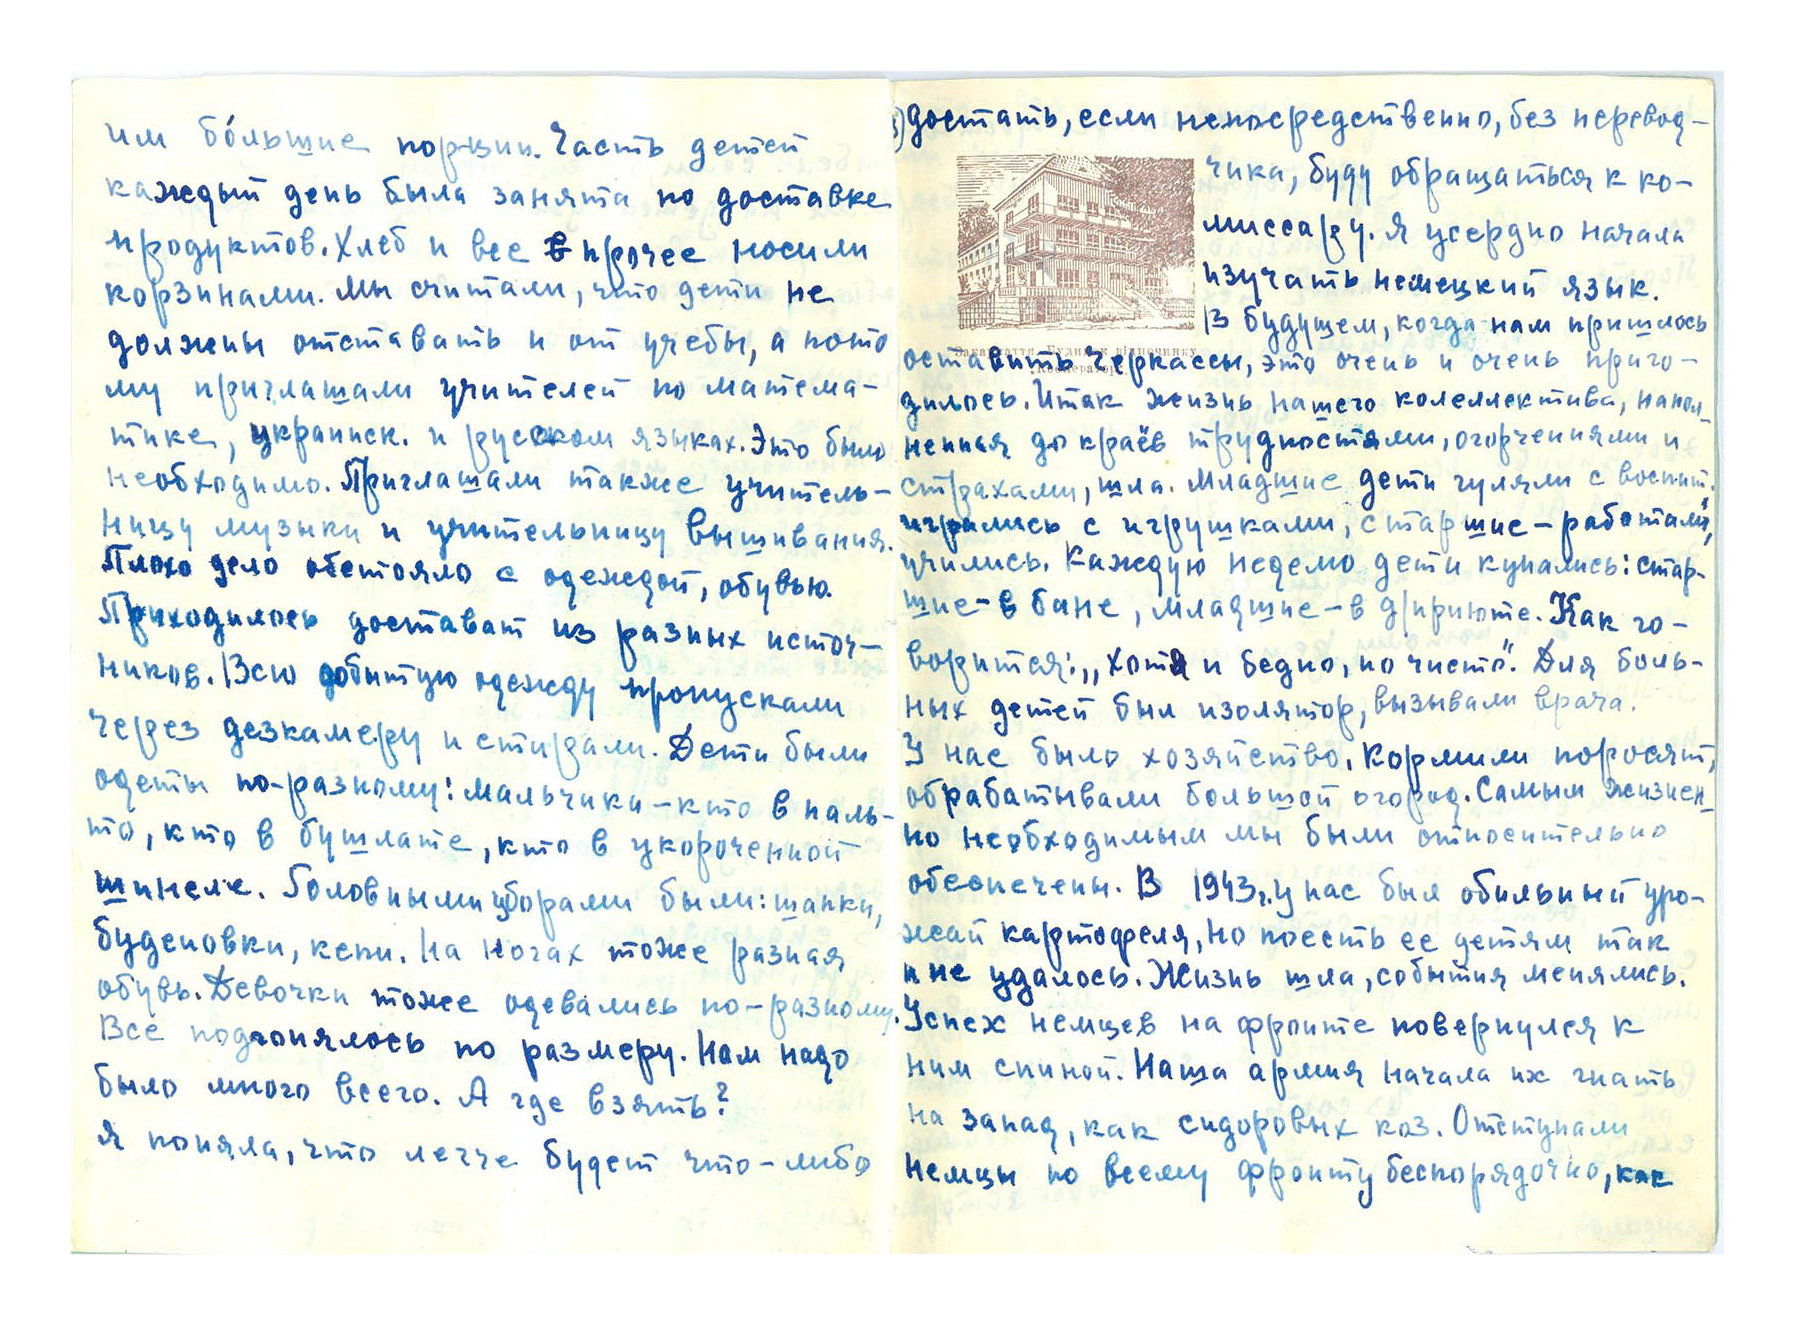 им бо́льшие порции. Часть детей
каждый день была занята по доставке
продуктов. Хлеб и все в прочее носили
корзинами. Мы считали, что дети не
должны отставать и от учебы, а пото
му приглашали учителей по матема-
тике, украинск. и русском языках. Это было
необходимо. Приглашали также учитель-
ницу музыки и учительницу вышивания.
Плохо дело обстояло с одеждой, обувью.
Приходилось достават из разных источ-
ников. Всю добытую одежду пропускали
через дезкамеру и стирали. Дети были
одеты по-разному: мальчики-кто в паль-
то, кто в бушлате, кто в укороченной
шинеле. Головными уборами были: шапки,
буденовки, кепи. На ногах тоже разная
обувь. Девочки тоже одевались по-разному.
Все подгонялось по размеру. Нам надо
было много всего. А где взять?
Я поняла, что легче будет что-либо
достать, если непосредственно, без перевод-
чика, буду обращаться к ко-
миссару. Я усердно начала
изучать немецкий язык.
В будущем, когда нам пришлось
Закарпаття. Будинок відпочинку
„Кооператор"
оставить Черкассы, это очень и очень приго-
дилось. Итак жизнь нашего колеллектива, напол-
ненная до краёв трудностями, огорчениями и
страхами, шла. Младшие дети гуляли с воспит.
игрались с игрушками, старшие-работали,
учились. Каждую неделю дети купались: стар-
шие-в бане, младшие-в д/приюте. Как го-
ворится: „хотя и бедно, но чисто". Для боль-
ных детей был изолятор, вызывали врача.
У нас было хозяйство. Кормили поросят,
обрабатывали большой огород. Самым жизнен-
но необходимым мы были относительно
обеспечены. В 1943г. у нас был обильный уро-
жай картофеля, но поесть ее детям так
и не удалось. Жизнь шла, события менялись.
Успех немцев на фронте повернулся к
ним спиной. Наша армия начала их гнать
на запад, как сидоровых коз. Отступали
немцы по всему фронту беспорядочно, как